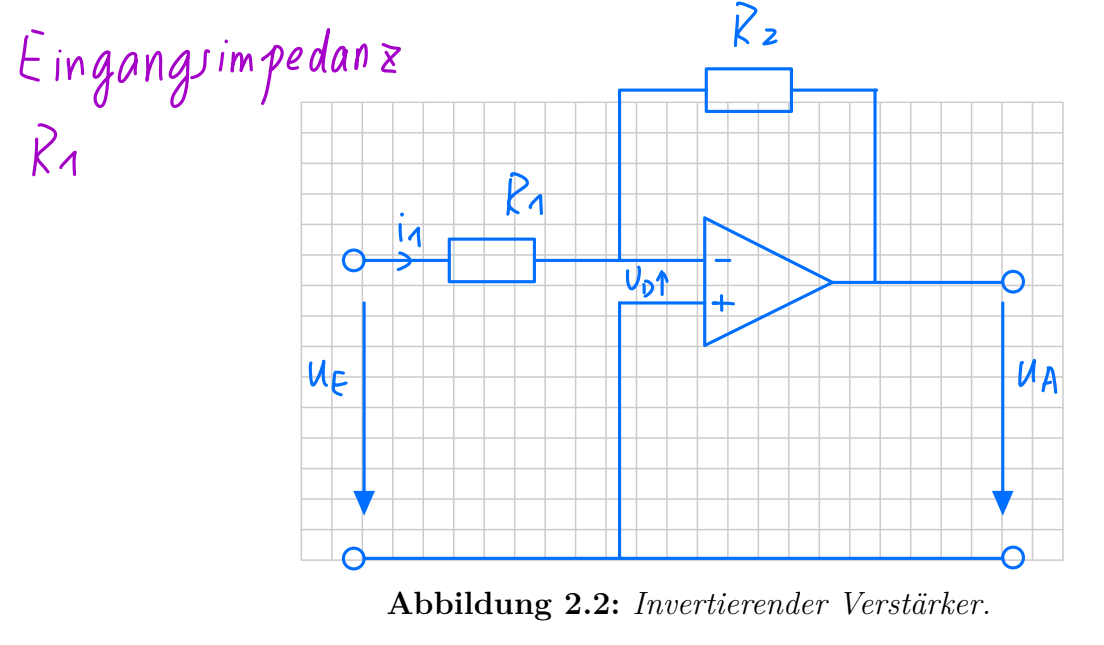 Eingangsimpedanz
R1
R2
R1
i1
UD↑
-
+
UE
UA
Abbildung 2.2: Invertierender Verstärker.